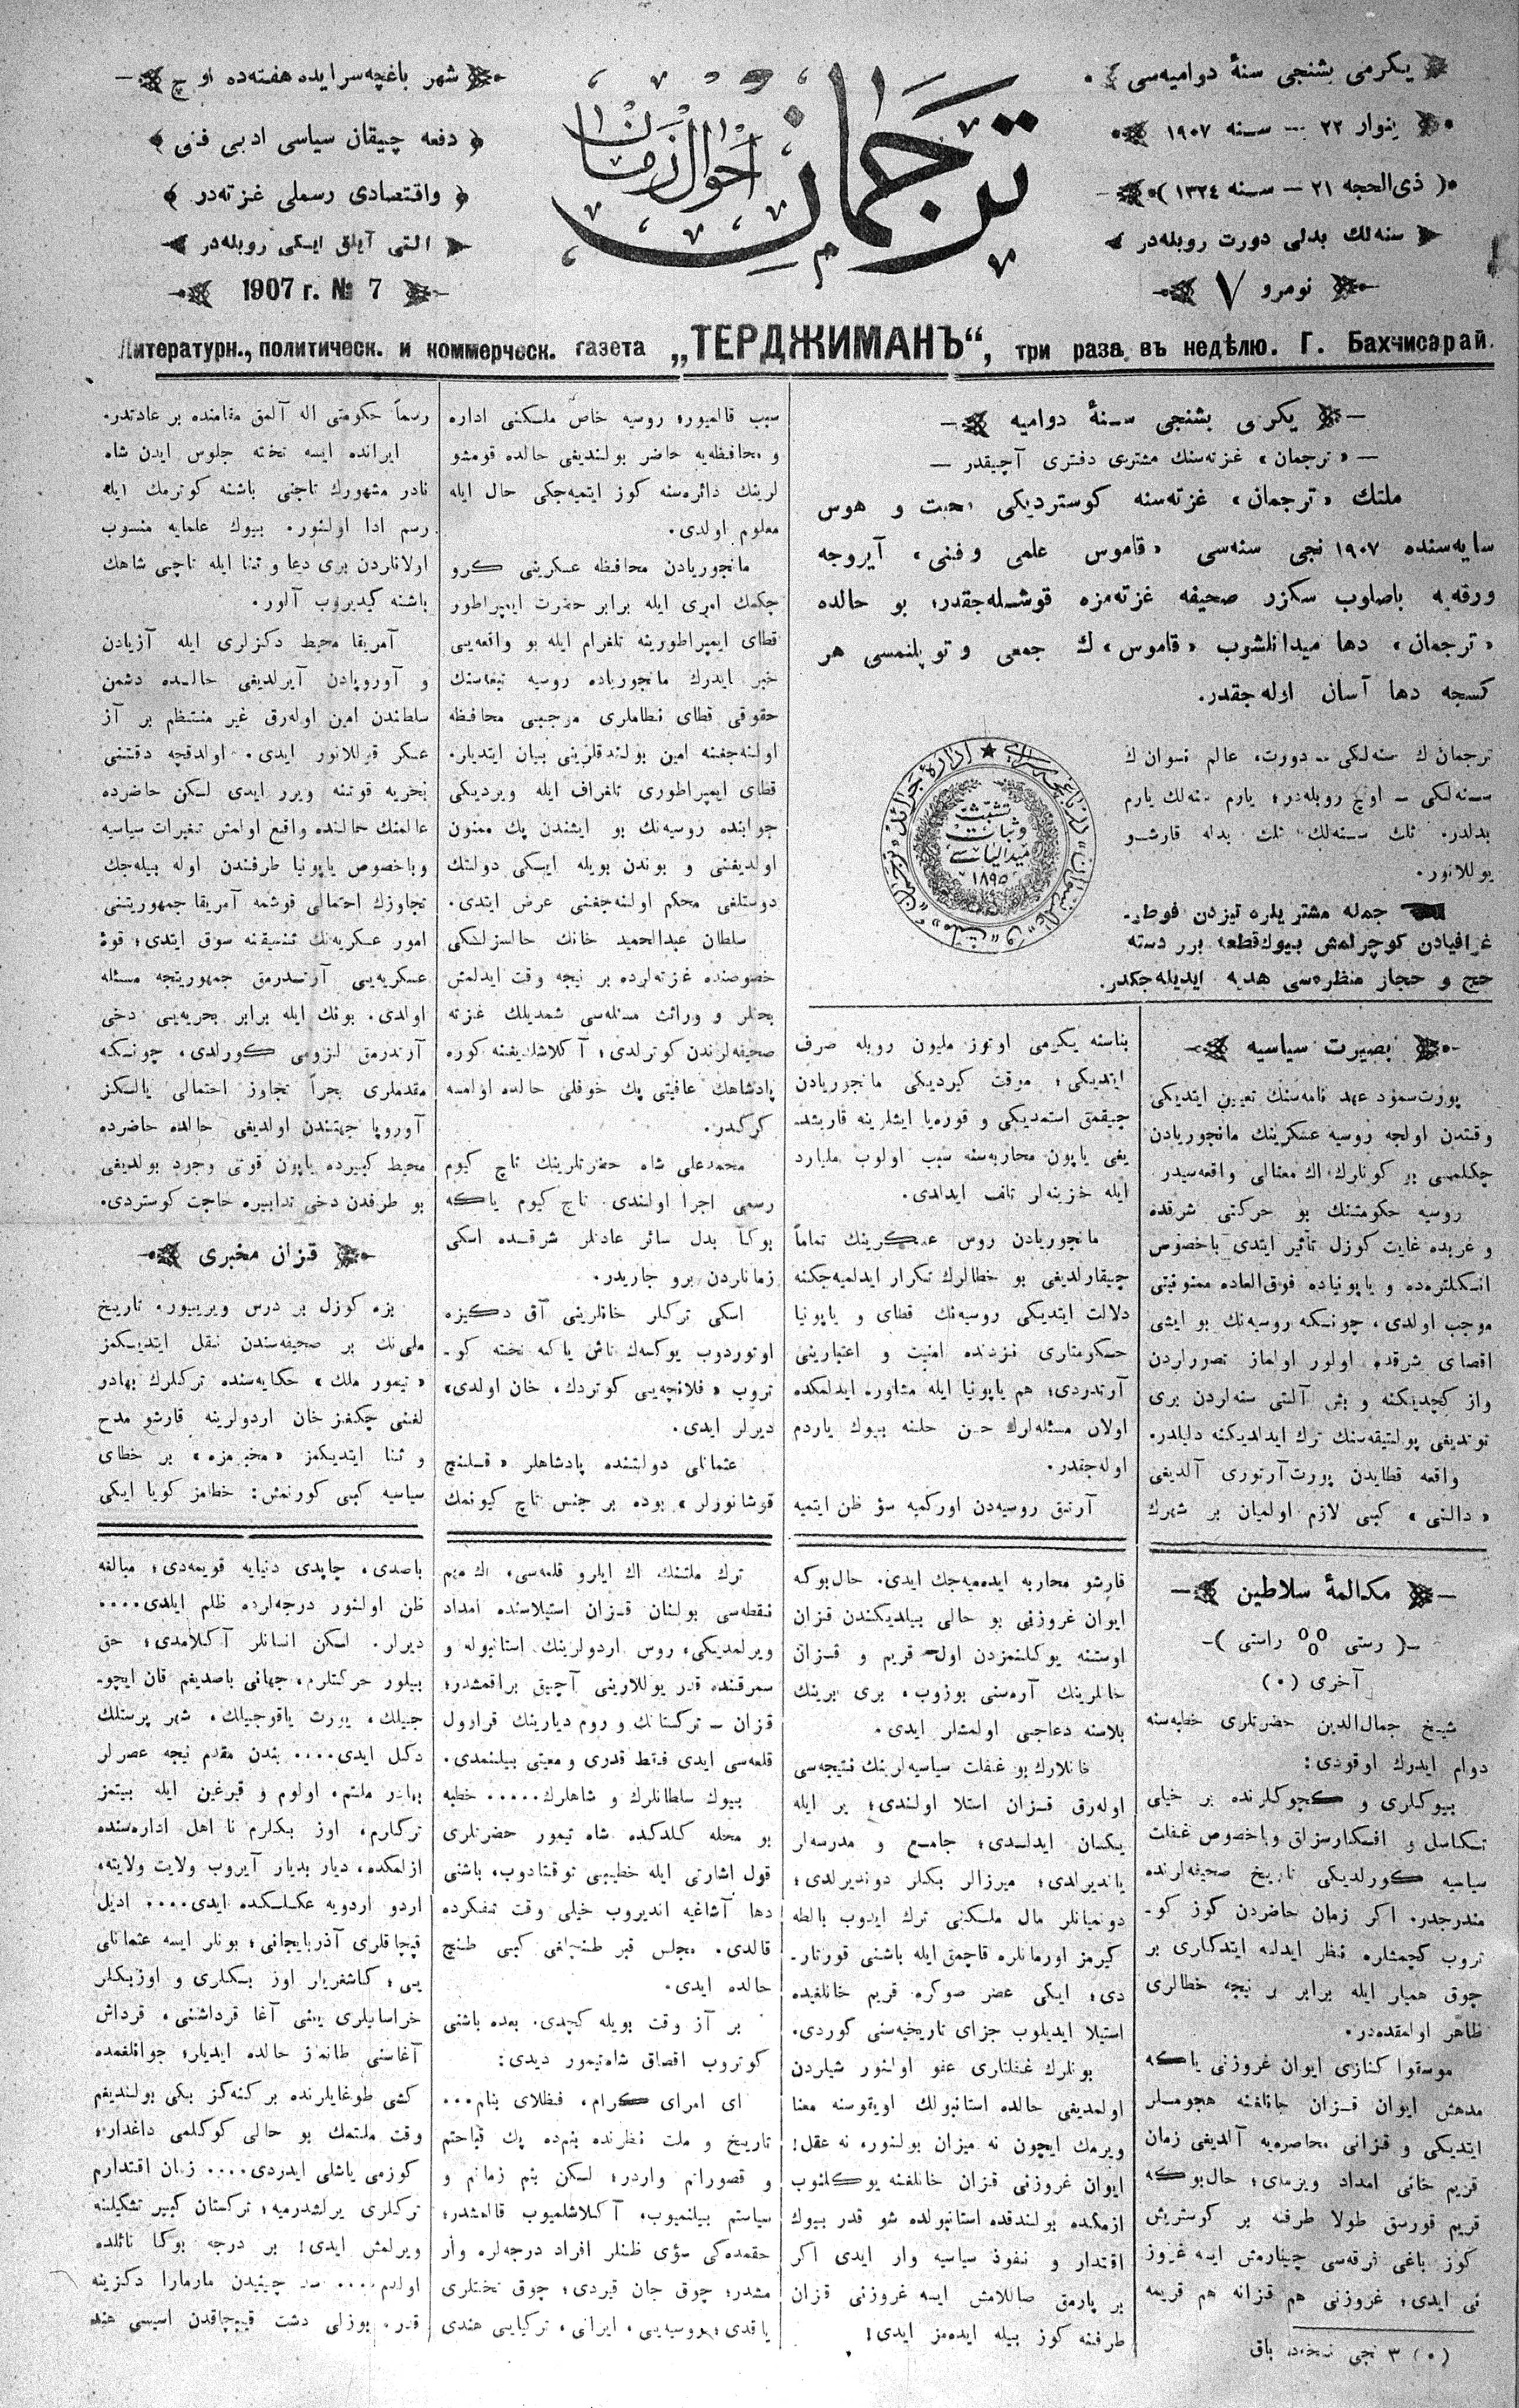 یکرمی بشنجی سنۀ دوامیه‌سی
ینوار ٢٢ — سنه ١٩٠٧
(ذی‌الحجه ٢١ — سنه ١٣٢٤)
سنه‌لك بدلی دورت روبله‌در
نومرو ٧
ترجمان
احوال زمان
شهر باغچه‌سرایده هفته‌ده اوچ
دفعه چیقان سیاسی ادبی فنی
واقتصادی رسملی غزته‌در
التی آیلق ایکی روبله‌در
1907 г. № 7
Литературн., политическ. и коммерческ. газета „ТЕРДЖИМАНЪ“, три раза въ недѣлю. Г. Бахчисарай.
یکرمی بشنجی سنۀ دوامیه
— «ترجمان» غزته‌سنك مشتری دفتری آچیقدر —
ملتك «ترجمان» غزته‌سنه کوستردیکی محبت و هوس
سایه‌سنده ١٩٠٧ نجی سنه‌سی «قاموس علمی وفنی» آیروجه
ورقه‌یه باصلوب سکزر صحیفه غزته‌مزه قوشله‌جقدر؛ بو حالده
«ترجمان» دها میدانلشوب «قاموس»ك جمعی و توپلنمسی هر
کسجه دها آسان اوله‌جقدر.
ترجمان‌ك سنه‌لکی — دورت، عالم نسوان‌ك
سنه‌لکی — اوچ روبله‌در؛ یارم سنه‌لك یارم
بدلدر. ثلث سنه‌لك ثلث بدله قارشو
یوللانور.
جمله مشتریلره تیزدن فوطو‌ـ
غرافیادن کوچرلمش بیوك‌قطعه برر دسته
حج و حجاز منظره‌سی هدیه ایدیله‌جکدر.
تشبث
وثبات
١٨٩٥
بصیرت سیاسیه
پورت‌سموَد عهد نامه‌سنك تعیین ایتدیکی
وقتدن اولجه روسیه عسکرینك مانجوریادن
چکلمسی بو کونلرك اك معنالی واقعه‌سیدر
روسیه حکومتنك بو حرکتی شرقده
و غربده غایت کوزل تأثیر ایتدی باخصوص
انکلتره‌ده و یاپونیاده فوق‌العاده ممنونیتی
موجب اولدی، چونکه روسیه‌نك بو ایشی
اقصای شرقده اولور اولماز تصورلردن
واز کچدیکنه و بش آلتی سنه‌لردن بری
توتدیغی پولتیقه‌سنك ترك ایدلدیکنه دلیلدر.
واقعه قطایدن پورت‌آرتوری آلدیغی
«دالنی» کبی لازم اولمیان بر شهرك
بناسنه یکرمی اوتوز ملیون روبله صرف
ایتدیکی؛ موقت کیردیکی مانجوریادن
چیقمق استمدیکی و قوره‌یا ایشلرینه قاریشدـ
یغی یاپون محاربه‌سنه سبب اولوب ملیارد
ایله خزینه‌لر تلف ایدلدی.
مانجوریادن روس عسکرینك تماماً
چیقارلدیغی بو خطالرك تکرار ایدلمیه‌جکنه
دلالت ایتدیکی روسیه‌نك قطای و یاپونیا
حکومتلری نزدنده امنیت و اعتبارینی
آرتدردی؛ هم یاپونیا ایله مشاوره ایدلمکده
اولان مسئله‌لرك حسن حلنه بیوك یاردم
اوله‌جقدر.
آرتق روسیه‌دن اورکمیه سؤ ظن ایتمیه
سبب قالمیور؛ روسیه خاص ملکنی اداره
و محافظه‌یه حاضر بولندیغی حالده قومشو
لرینك دائره‌سنه کوز ایتمیه‌جکی حال ایله
معلوم اولدی.
مانجوریادن محافظه عسکرینی کرو
چکمك امری ایله برابر حضرت ایمپراطور
قطای ایمپراطورینه تلغرام ایله بو واقعه‌یی
خبر ایدرك مانجوریاده روسیه تبعه‌سنك
حقوقی قطای نظاملری موجبی محافظه
اولنه‌جغنه امین بولندقلرینی بیان ایتدیلر.
قطای ایمپراطوری تلغراف ایله ویردیکی
جوابنده روسیه‌نك بو ایشندن پك ممنون
اولدیغنی و بوندن بویله ایکی دولتك
دوستلغی محکم اولنه‌جغنی عرض ایتدی.
سلطان عبدالحمید خانك حالسزلنکی
خصوصنده غزته‌لرده بر نیچه وقت ایدلمش
بحثلر و وراثت مسئله‌سی شمدیلك غزته
صحیفه‌لرندن کوترلدی؛ آکلاشلدیغنه کوره
پادشاهك عافیتی پك خوفلی حالده اولمسه
کرکدر.
محمدعلی شاه حضرتلرینك تاج کیوم
رسمی اجرا اولندی. تاج کیوم یاکه
بوکا بدل سائر عادتلر شرقده اسکی
زمانلردن برو جاریدر.
اسکی ترکلر خانلرینی آق دکیزه
اوتوردوب یوکسه‌ك تاش یاکه تخته کوـ
تروب «فلانچه‌یی کوتردك، خان اولدی»
دیرلر ایدی.
عثمانلی دولتنده پادشاهلر «قلنچ
قوشانورلر» بوده بر جنس تاج کیونمك
رسماً حکومتی اله آلمق مقامنده بر عادتدر.
ایرانده ایسه تخته جلوس ایدن شاه
نادر مشهورك تاجنی باشنه کوترمك ایله
رسم ادا اولنور. بیوك علمایه منسوب
اولانلردن بری دعا و ثنا ایله تاجی شاهك
باشنه کیدیروب آلور.
آمریقا محیط دکزلری ایله آزیادن
و آوروپادن آیرلدیغی حالده دشمن
سلطندن امین اوله‌رق غیر منتظم بر آز
عسکر قوللانور ایدی. اولدقچه دقتنی
بحریه قوتنه ویرر ایدی لکن حاضرده
عالمك حالنده واقع اولمش تغیرات سیاسیه
وباخصوص یاپونیا طرفندن اوله بیله‌جك
تجاوزك احتمالی قوشمه آمریقا جمهوریتنی
امور عسکریه‌نك تنسیقنه سوق ایتدی؛ قوۀ
عسکریه‌یی آرتدرمق جمهوریتجه مسئله
اولدی. بونك ایله برابر بحریه‌یی دخی
آرتدرمق لزومی کورلدی، چونکه
مقدملری بحراً تجاوز احتمالی یالکز
آوروپا جهتندن اولدیغی حالده حاضرده
محیط کبیرده یاپون قوتی وجود بولدیغی
بو طرفدن دخی تدابیره حاجت کوستردی.
قزان مخبری
بزه کوزل بر درس ویرییور. تاریخ
ملی‌نك بر صحیفه‌سندن نقل ایتدیکمز
«تیمور ملك» حکایه‌سنده ترکلرك بهادر
لغنی چنگز خان اردولرینه قارشو مدح
و ثنا ایتدیکمز «مخبرمزه» بر خطای
سیاسیه کبی کورنمش: خطامز کویا ایکی
مکالمۀ سلاطین
—( رستی راستی )—
آخری (٠)
شیخ جمال‌الدین حضرتلری خطبه‌سنه
دوام ایدرك اوقودی:
بیوکلری و کچوکلرنده بر خیلی
تکاسل و افکارسزلق وباخصوص غفلت
سیاسیه کورلدیکی تاریخ صحیفه‌لرنده
مندرجدر. اکر زمان حاضردن کوز کوـ
تروب کچمشلره نظر ایدلسه ایتدکلری بر
چوق همیار ایله برابر بر نیچه خطالری
ظاهر اولمقده‌در.
موسقوا کنازی ایوان غروزنی یاکه
مدهش ایوان قزان خانلغنه هجوملر
ایتدیکی و قزانی محاصره‌یه آلدیغی زمان
قریم خانی امداد ویرمدی؛ حال‌بوکه
قریم قورسق طولا طرفنه بر کوستریش
کوز باغی فرقه‌سی چیقارمش ایسه غروز
نی ایدی؛ غروزنی هم قزانه هم قریمه
(٠) ٣ نجی نسخه‌یه باق
قارشو محاربه ایده‌میه‌جك ایدی. حال‌بوکه
ایوان غروزنی بو حالی بیلدیکندن قزان
اوستنه یوکلنمزدن اول قریم و قزان
خانلرینك آره‌سنی بوزوب، بری برینك
بلاسنه دعاجی اولمشلر ایدی.
خانلارك بو غفلت سیاسیه‌لرینك نتیجه‌سی
اوله‌رق قزان استلا اولندی؛ یر ایله
یکسان ایدلدی؛ جامع و مدرسه‌لر
یاندیرلدی؛ میرزالر بکلر دوندیرلدی؛
دونمیانلر مال ملکنی ترك ایدوب بالطه
کیرمز اورمانلره قاچمق ایله باشنی قورتارـ
دی؛ ایکی عصر صوکره قریم خانلغیده
استیلا ایدیلوب جزای تاریخیه‌سنی کوردی.
بونلرك غفلتلری عفو اولنور شیلردن
اولمدیغی حالده استانبولك اویقوسنه معنا
ویرمك ایچون نه میزان بولنور، نه عقل!
ایوان غروزنی قزان خانلغنه یوکلنوب
ازمکده بولندقده استانبولده شو قدر بیوك
اقتدار و نفوذ سیاسیه وار ایدی اکر
بر پارمق صاللامش ایسه غروزنی قزان
طرفنه کوز بیله ایده‌مز ایدی!
ترك ملتنك اك ایلرو قلعه‌سی، اك مهم
نقطه‌سی بولنان قزان استیلاسنده امداد
ویرلمدیکی، روس اردولرینك استانبوله و
سمرقنده قدر یوللارینی آچیق براقمشدر؛
قزان — ترکستانك و روم دیارینك قراوول
قلعه‌سی ایدی فقط قدری و معیتی بیلنمدی.
بیوك سلطانلرك و شاهلرك..... خطبه
بو محله کلدکده شاه تیمور حضرتلری
قول اشارتی ایله خطیبی توقتادوب، باشنی
دها آشاغیه اندیروب خیلی وقت تفکرده
قالدی. مجلس قبر طنچلغی کبی طنچ
حالده ایدی.
بر آز وقت بویله کچدی. بعده باشنی
کوتروب اقصاق شاه‌تیمور دیدی:
ای امرای کرام، فضلای بنام...
تاریخ و ملت نظرنده بنم‌ده پك قباحتم
و قصورلرم واردر؛ لکن بنم زمانم و
سیاستم بیلنمیوب، آکلاشلمیوب قالمشدر؛
حقمده‌کی سؤی ظنلر افراد درجه‌لره وار
مشدر؛ چوق جان قیردی؛ چوق تختلری
یاقدی؛ روسیه‌یی، ایرانی، ترکیایی هندی
باصدی، چاپدی دنیایه قویمه‌دی؛ مبالغه
ظن اولنور درجه‌لرده ظلم ایلدی....
دیرلر. لکن انسانلر آکلامدی؛ حق
بیلور حرکتلرم، جهانی باصدیغم قان ایچوـ
جیلك، یورت یاقوجیلك، شهر پرستلك
دکل ایدی.... بندن مقدم نیچه عصرلر
بهادر ملتم، اولوم و قیرغین ایله بیتمز
ترکلرم، اوز بکلرم نا اهل اداره‌سنده
ازلمکده، دیار بدیار آیروب ولایت ولایته،
اردو اردویه عکسلکده ایدی.... ادیل
قپچاقلری آذربایجانی؛ بونلر ایسه عثمانلی
یی؛ کاشغریلر اوز بکلری و اوزبکلر
خراسانیلری یعنی آغا قرداشنی، قرداش
آغاسنی طانمز حالده ایدیلر؛ جوانلغمده
کشی طوغایلرنده بر کنه‌کز بکی بولندیغم
وقت ملتمك بو حالی کوکلمی داغدار،
کوزمی یاشلی ایدردی.... زمان اقتدارم
ترکلری برلشدرمیه؛ ترکستان کبیر تشکیلنه
ویرلمش ایدی! بر درجه بوکا نائلده
اولدم.... سد چینیدن مارمارا دکزینه
قدر، بوزلی دشت قیپچاقدن اسیسی هند